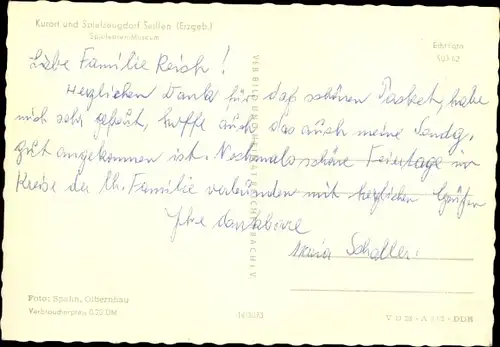 Kurort und Spielzeugdorf Seiffen (Erzgeb.)
Spielzeugmuseum
Echt Foto
Liebe Familie Reich!
Herzlichen Dank für das schönen Packet, habe
mich sehr gefreut, hoffe auch das auch meine Sendg.
gut angekommen ist. Nochmals schöne Feiertage im
Kreise der lb. Familie verbunden mit herzlichen Grüßen
Ihre dankbare
Maria Schaller.
Foto: Spahn, Olbernhau
Verbraucherpreis 0,22 DM
DDR